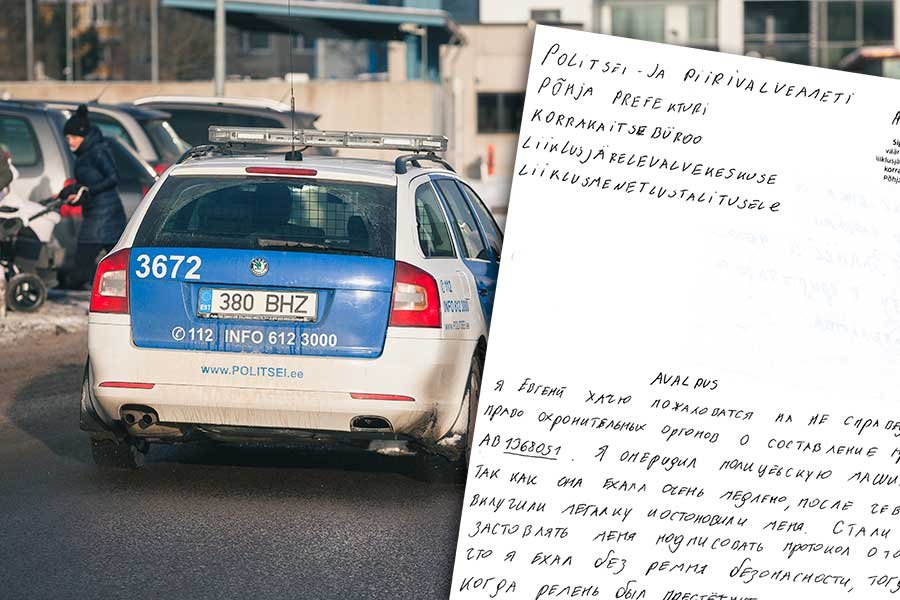 3672
380 BHZ
EST
112 INFO 612 3000
www.POLITSEI.ee
112
INFO 612
WWW.POLITSEI.EE
POLITSEI-JA PIIRIVALVEAMETI
PÕHJA PREFEKTURI
KORRAKAITSEBÜROO
LIIKLUSJÄRELEVALVEKESKUSE
LIIKLUSMENETLUSTALITUSELE
AVALDUS
Я ЕВГЕНИЙ ХАЧЮ ПОЖАЛОВАТСЯ НА НЕ СПРАВЕ
ПРАВО ОХРОНИТЕЛЬНЫХ ОРГОНОВ О СОСТАВЛЕНИЕ
АВ 1368051. Я ОПЕРИДИЛ ПОЛИЦЕЙСКУЮ МАШИ
ТАК КАК ОНА ЕХАЛА ОСЕНЬ МЕДЛЕНО, ПОСЛЕ ЧЕВ
ВКЛУЧИЛИ МЕГАЛКУ И ОСТОНОВИЛИ МЕНЯ. СТАЛИ
ЗАСТОВЛЯТЬ МЕНЯ ПОДПИСОВАТЬ ПРОТОКОЛ О ТО
ЧТО Я ЕХАЛ БЕЗ РЕМНЯ БЕЗОПАСНОСТИ, ТОГ
КОГДА РЕМЕНЬ БЫЛ